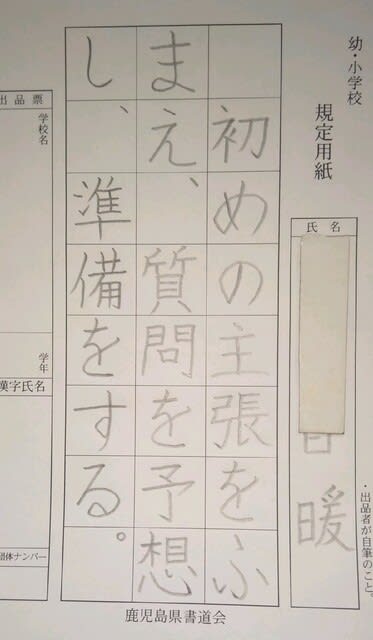 幼・小学校
規定用紙
氏名
暖
・出品者が自筆のこと。
初めの主張をふ
まえ、質問を予想
し、準備をする。
出品票
学校名
学年
漢字氏名
団体ナンバー
鹿児島県書道会